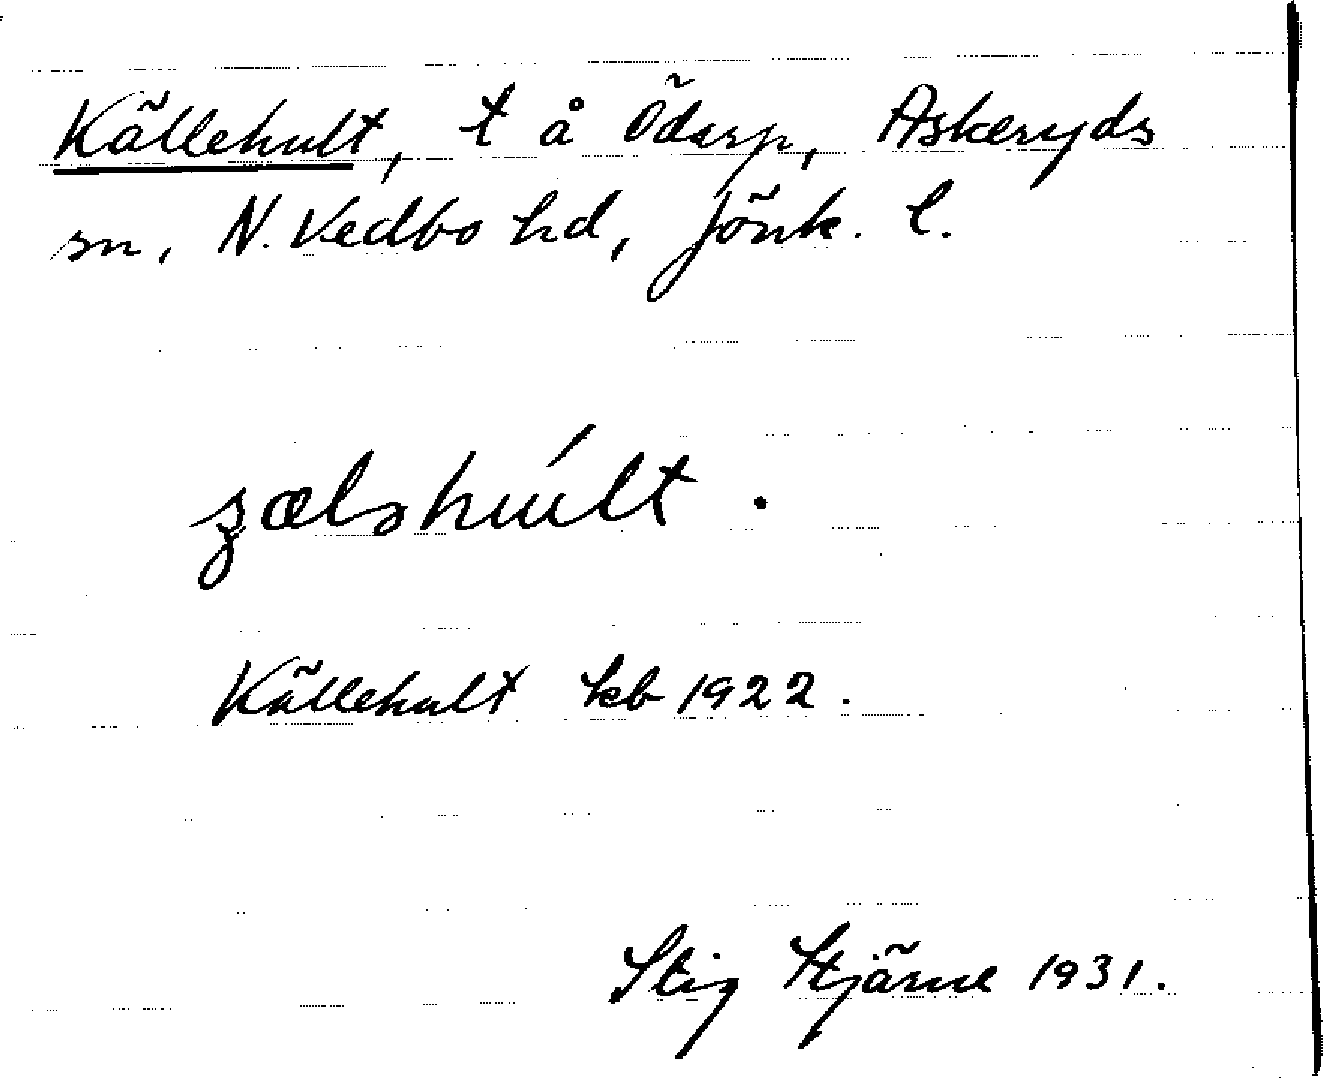 Källehult, t å Ödarp, Askeryds
sn, N. Vedbo hd, Jönk. l.
Källehult kb 1922.
Stig Stjärne 1931.